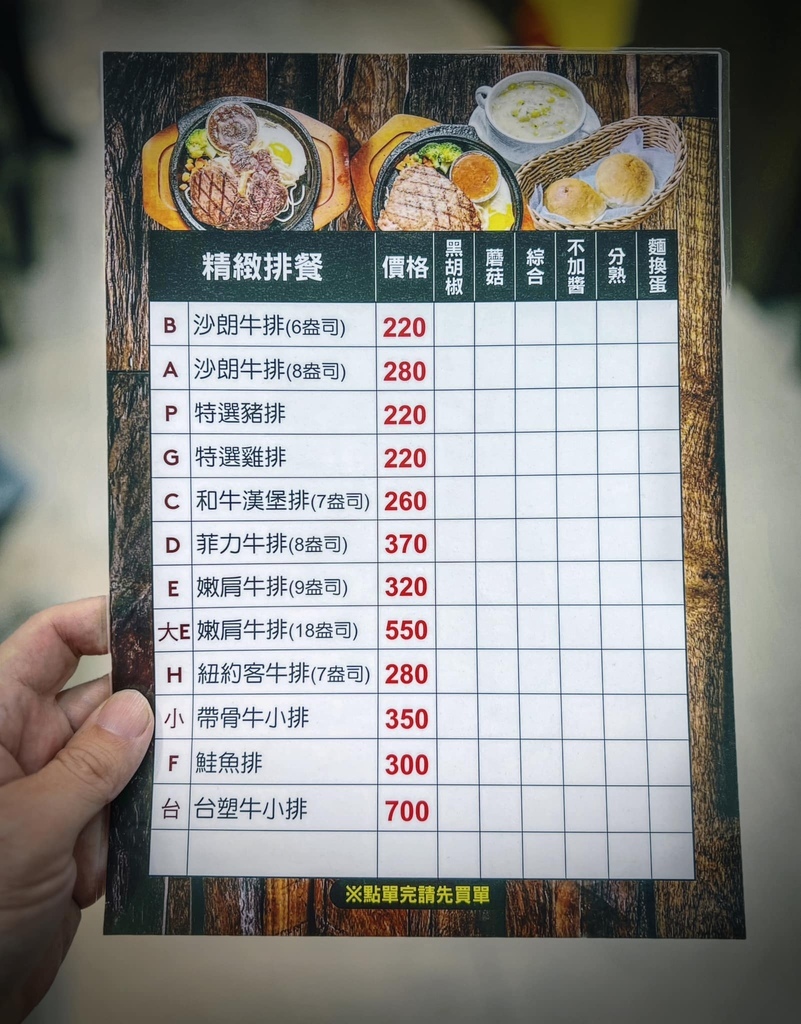 精緻排餐 價格 黑胡椒 蘑菇 綜合 不加醬 分熟 麵換蛋
B 沙朗牛排(6盎司) 220
A 沙朗牛排(8盎司) 280
P 特選豬排 220
G 特選雞排 220
C 和牛漢堡排(7盎司) 260
D 菲力牛排(8盎司) 370
E 嫩肩牛排(9盎司) 320
大E 嫩肩牛排(18盎司) 550
H 紐約客牛排(7盎司) 280
小 帶骨牛小排 350
F 鮭魚排 300
台 台塑牛小排 700
※點單完請先買單